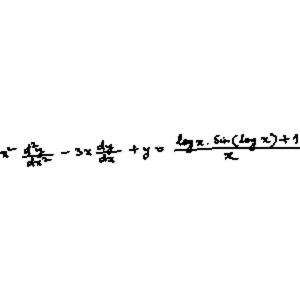 x² d²y/dx² - 3x dy/dx + y = log x . Sin(log x) + 1 / x